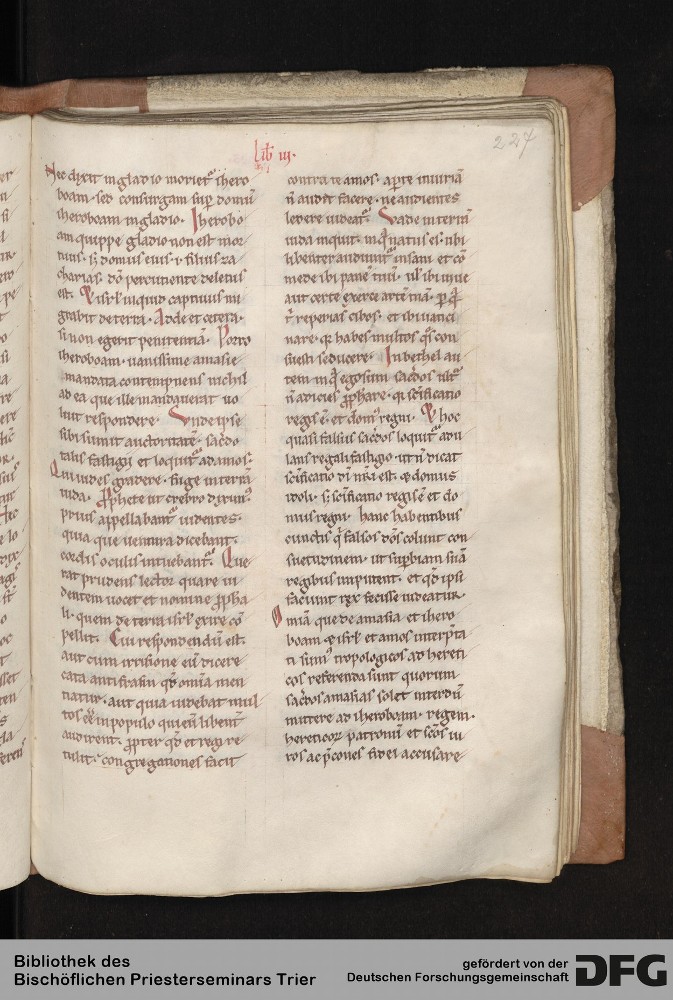 Lib̄ iij.
227
Nec dixit in gladio moriet᷑ ihero
boam. sed consurgam sup̱ domū
iheroboam in gladio. Iherobo
am quippe gladio non est mor
tuus. s; domus eius. i. filius za
charias. dō percutiente deletus
est. Et isrl̄ inquid captiuus mi
grabit de terra. Adde et cetera.
si non egerit penitentiā. Porro
iheroboam. uanissime amasie
mandata contempnens nichil
ad ea que ille mandauerat uo
luit respondere. Vnde ipse
sibi sumit auctoritatē. sacdo
talis fastigii et loquit᷑ ad amos.
Qui uides gradere. fuge in terrā
iuda. Pphete ut crebro diximꝰ
prius appellabant᷑ uidentes.
quia que uentura dicebant.
cordis oculis intuebant᷑. Que
rat prudens lector quare ui
dentem uocet et nomine ppha
li. quem de terra isrl̄ exire cō
pellit. Cui respondendū est.
aut cum irrisione eū dicere
cata antifrasin qđ omīa men
tiatur. aut quia uidebat mul
tos eē in populo qui eū libent̄
audirent. ppter qđ et regi re
tulit. congregationes facit
contra te amos. aperte iniuriā
n̄ audit facere. ne audientes
ledere uideat᷑. Vade in terrā
iuda inquit. in q̄ natus es. ubi
libenter audiunt᷑ insani. et cō
mede ibi panē tuū. ul̄ ibi uiue
aut certe exerce artē tuā. p̱ q̄
t̄ reperias cibos. et ibi uatici
nare. q̄ habes multos q̄s con
sueisti seducere. In bethel au
tem in q̄ ego sum sacdos ult᷑
n̄ adicies pphare. q̄ scificatio
regis ē. et domꝰ regni. Et hoc
quasi falsus sacdos loquit᷑ adu
lans regali fastigio. ut n̄ dicat
scificatio dī nr̄i est. et domus
idoli. s; scificatio regis ē et do
mus regni. hanc habentibus
cunctis q̄ falsos dōs colunt con
suetudinem. ut supbiam suā
regibus imputent. et qđ ipsi
faciunt rex fecisse uideatur.
Omīa que de amasia et ihero
boam et isrl̄ et amos interp̄ta
ti sumꝰ tropologicos ad hereti
cos referenda sunt quorum
sacdos amasias solet interdū
mittere ad iheroboam. regem.
hereticoꝝ patronū. et scōs ui
ros ac p̄cones fidei accusare
Bibliothek des
Bischöflichen Priesterseminars Trier
gefördert von der
Deutschen Forschungsgemeinschaft
DFG